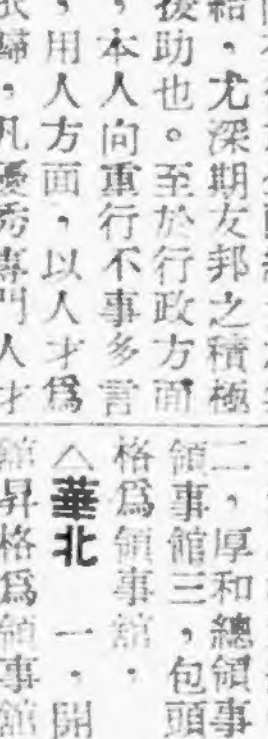 結，尤深期友邦之積極
援助也。至於行政方面
，本人向重行不事多言
，用人方面，以人才爲
歸，凡優秀專門人才
二，厚和總領事
領事館三，包頭
格爲領事館，
△華北　一，開
館昇格爲領事館